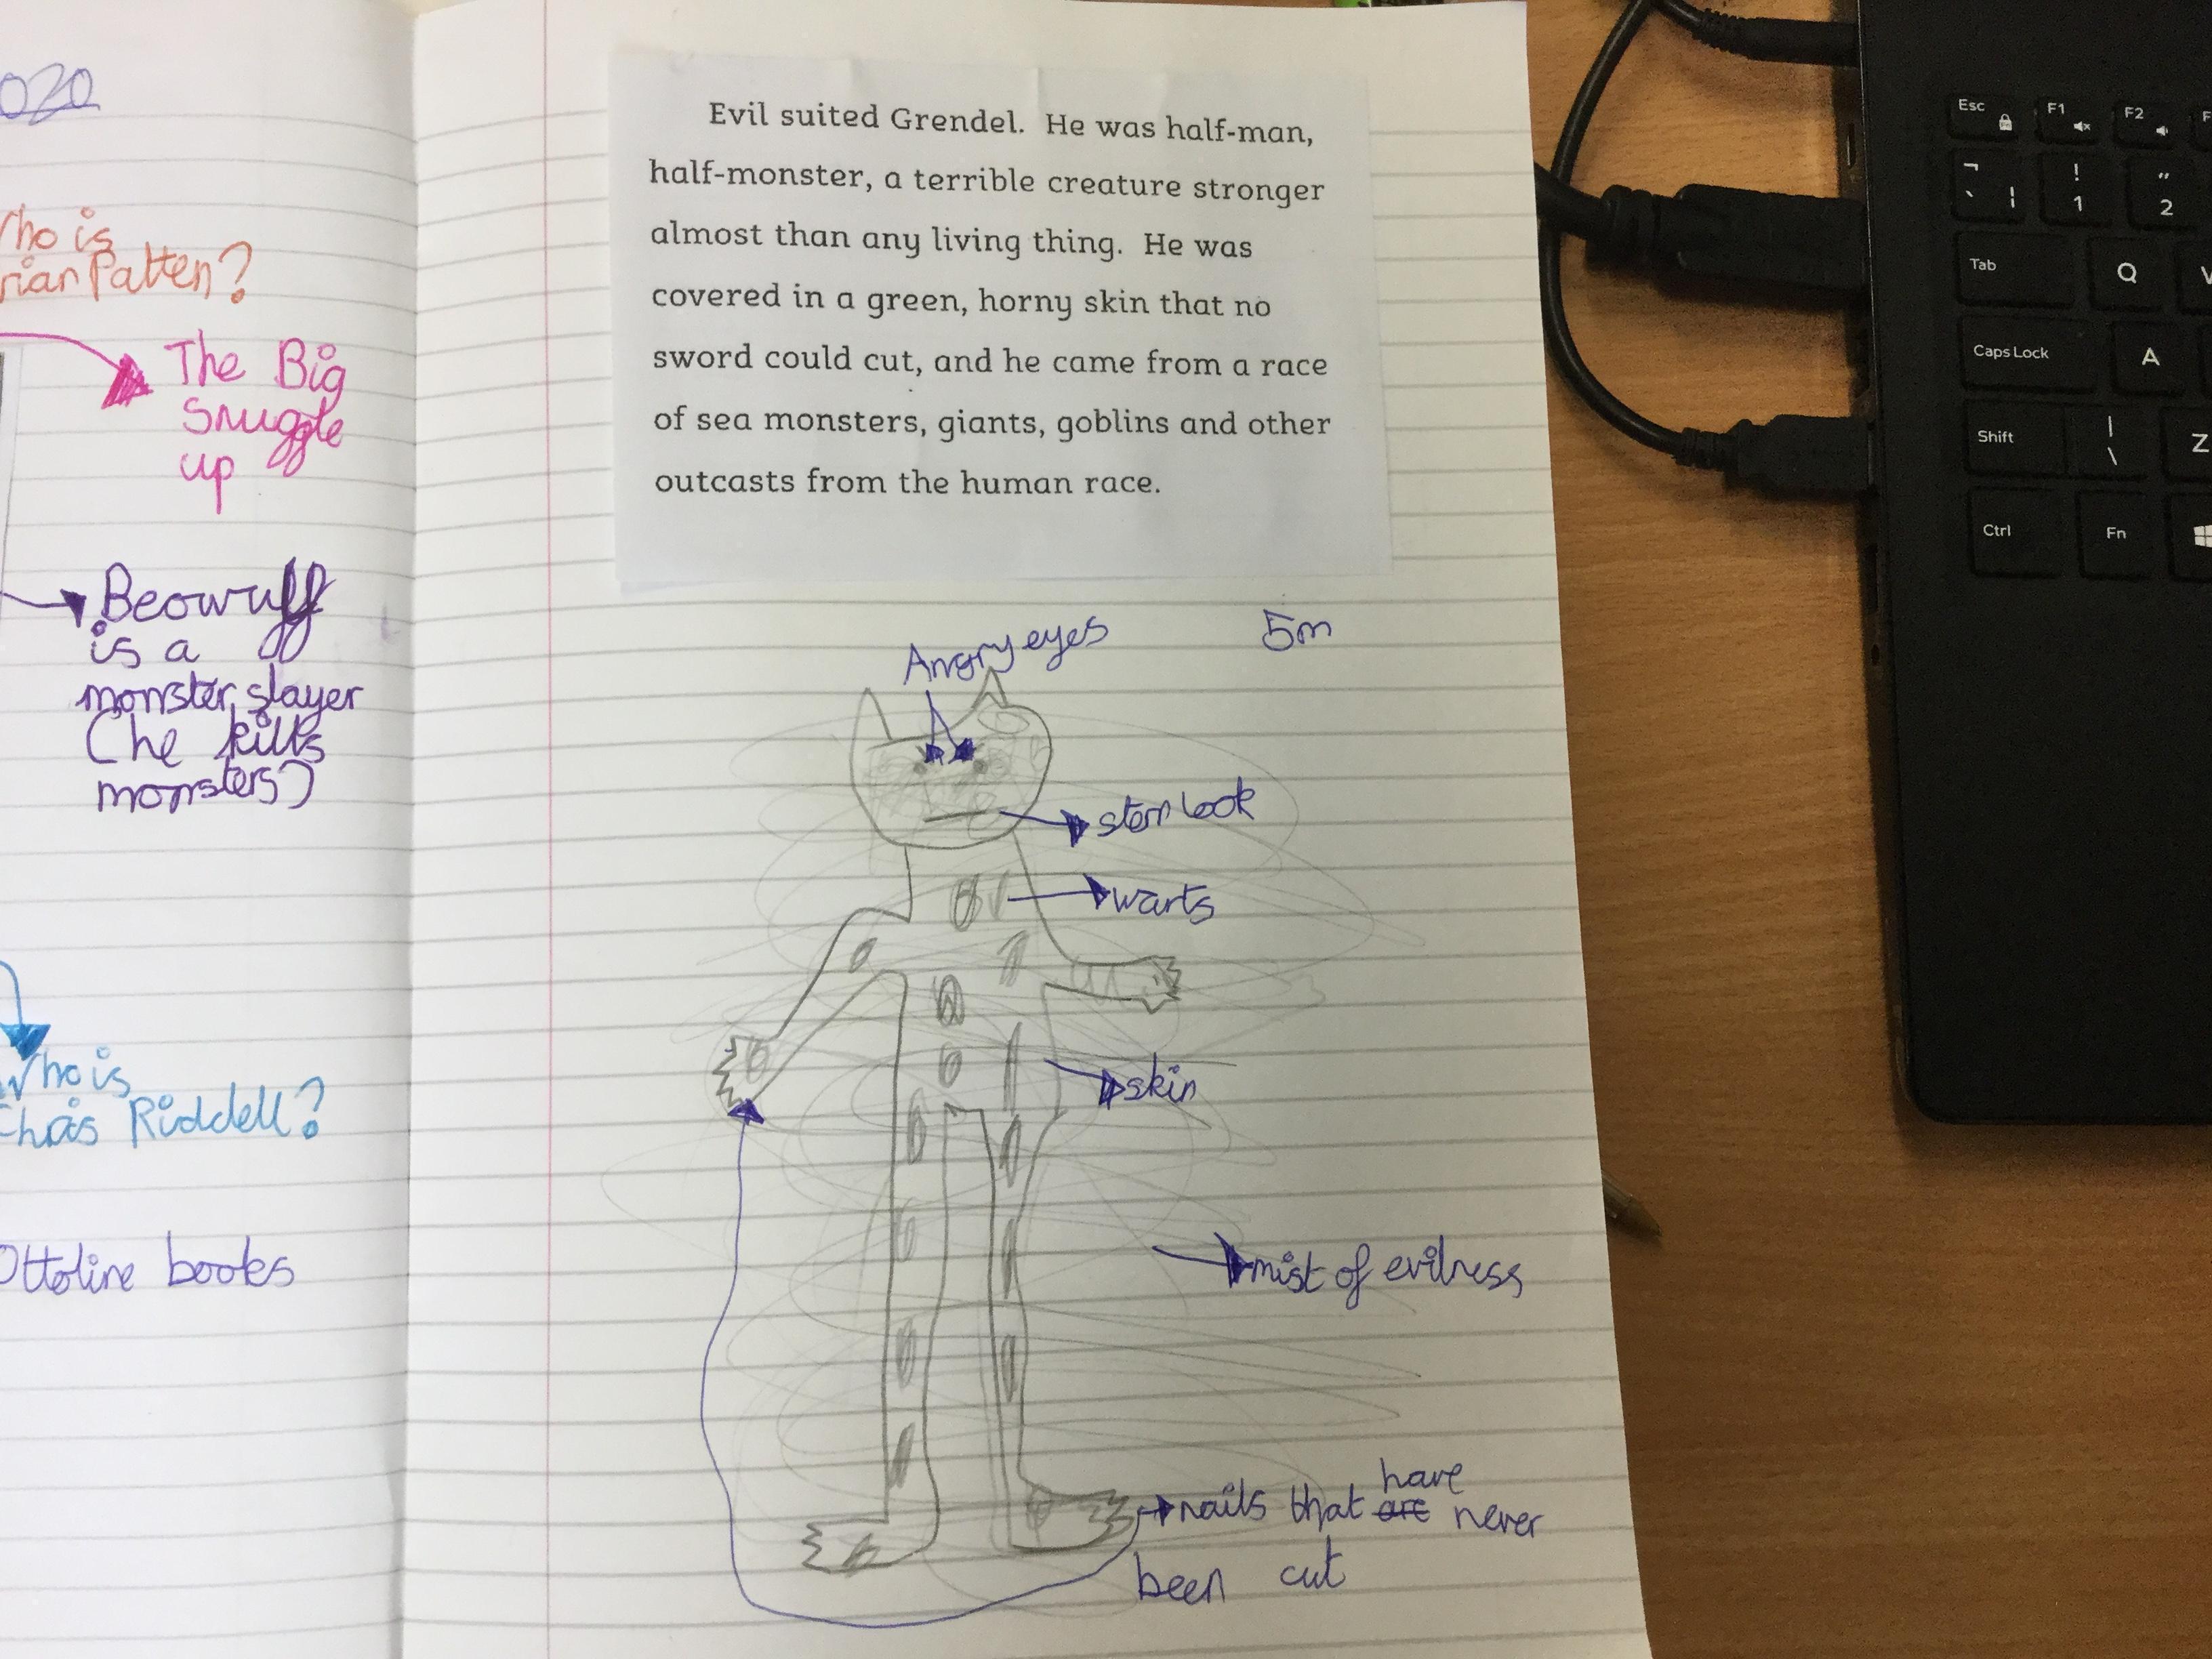 020
Who is
rian Patten?
The Big
Snuggle
up
Beowulff
is a
monster slayer
(he kills
monsters)
Who is
Chris Riddell?
Ottoline books
Evil suited Grendel. He was half-man,
half-monster, a terrible creature stronger
almost than any living thing. He was
covered in a green, horny skin that no
sword could cut, and he came from a race
of sea monsters, giants, goblins and other
outcasts from the human race.
Angry eyes
5m
stern look
warts
skin
mist of evilness
have
nails that are never
been cut
Esc F1 F2 F
¬ ! "
` ¦ 1 2
Tab Q
Caps Lock A
Shift | \ Z
Ctrl Fn